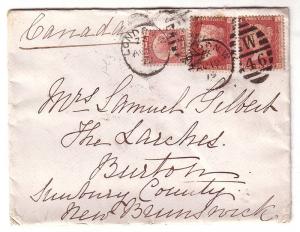 Canada
LONDON
W
46
Mrs Samuel Gilbert
The Larches
Burton
Sunbury County
New Brunswick